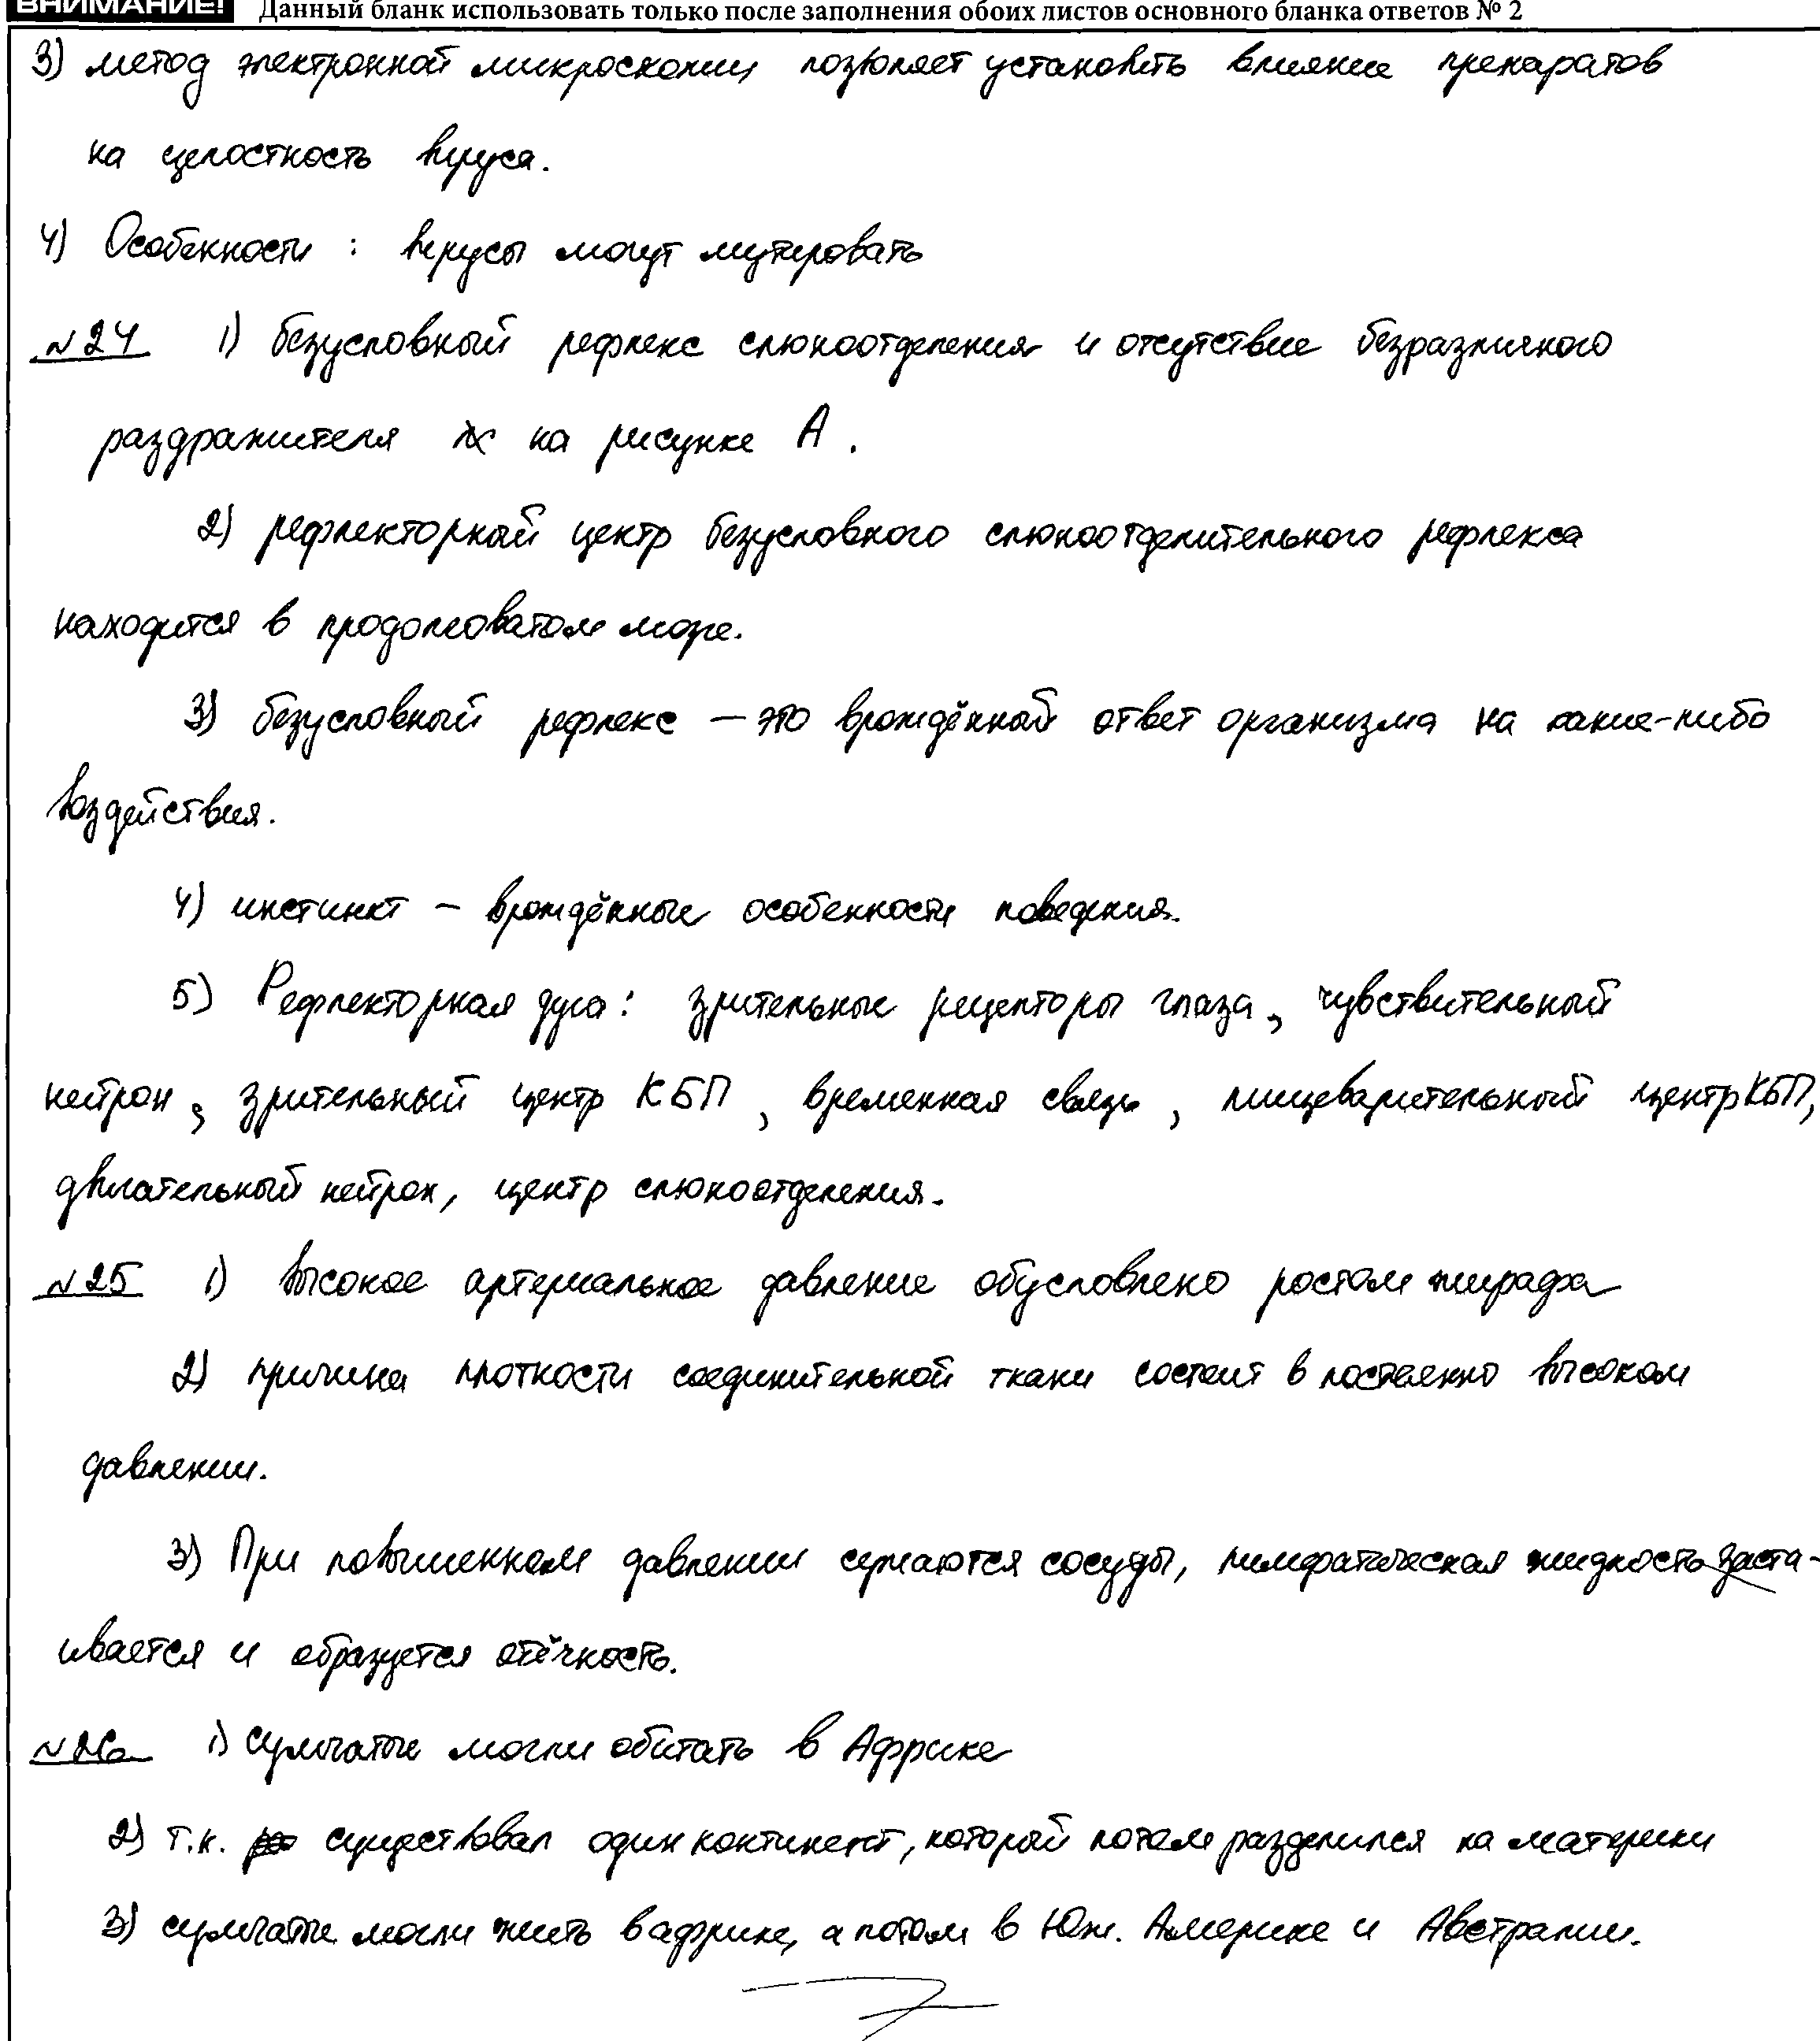 ВНИМАНИЕ! Данный бланк использовать только после заполнения обоих листов основного бланка ответов № 2
3) метод электронной микроскопии позволяет установить влияние препаратов
на целостность вируса.
4) Особенности : вирусы могут мутировать
№24 1) безусловный рефлекс слюноотделения и отсутствие безразличного
раздражителя на рисунке А.
2) рефлекторный центр безусловного слюноотделительного рефлекса
находится в продолговатом мозге.
3) безусловный рефлекс — это врождённый ответ организма на какие-либо
воздействия.
4) инстинкт — врождённые особенности поведения.
5) Рефлекторная дуга: зрительные рецепторы глаза, чувствительный
нейрон, зрительный центр КБП, временная связь, пищеварительный центр КБП,
двигательный нейрон, центр слюноотделения.
№25 1) высокое артериальное давление обусловлено ростом жирафа
2) причина плотности соединительной ткани состоит в постоянно высоком
давлении.
3) При повышенном давлении сужаются сосуды, лимфатическая жидкость заста-
ивается и образуется отёчность.
№26 1) сумчатые могли обитать в Африке
2) т.к. существовал один континент, который потом разделился на материки
3) сумчатые могли жить в африке, а потом в Юж. Америке и Австралии.